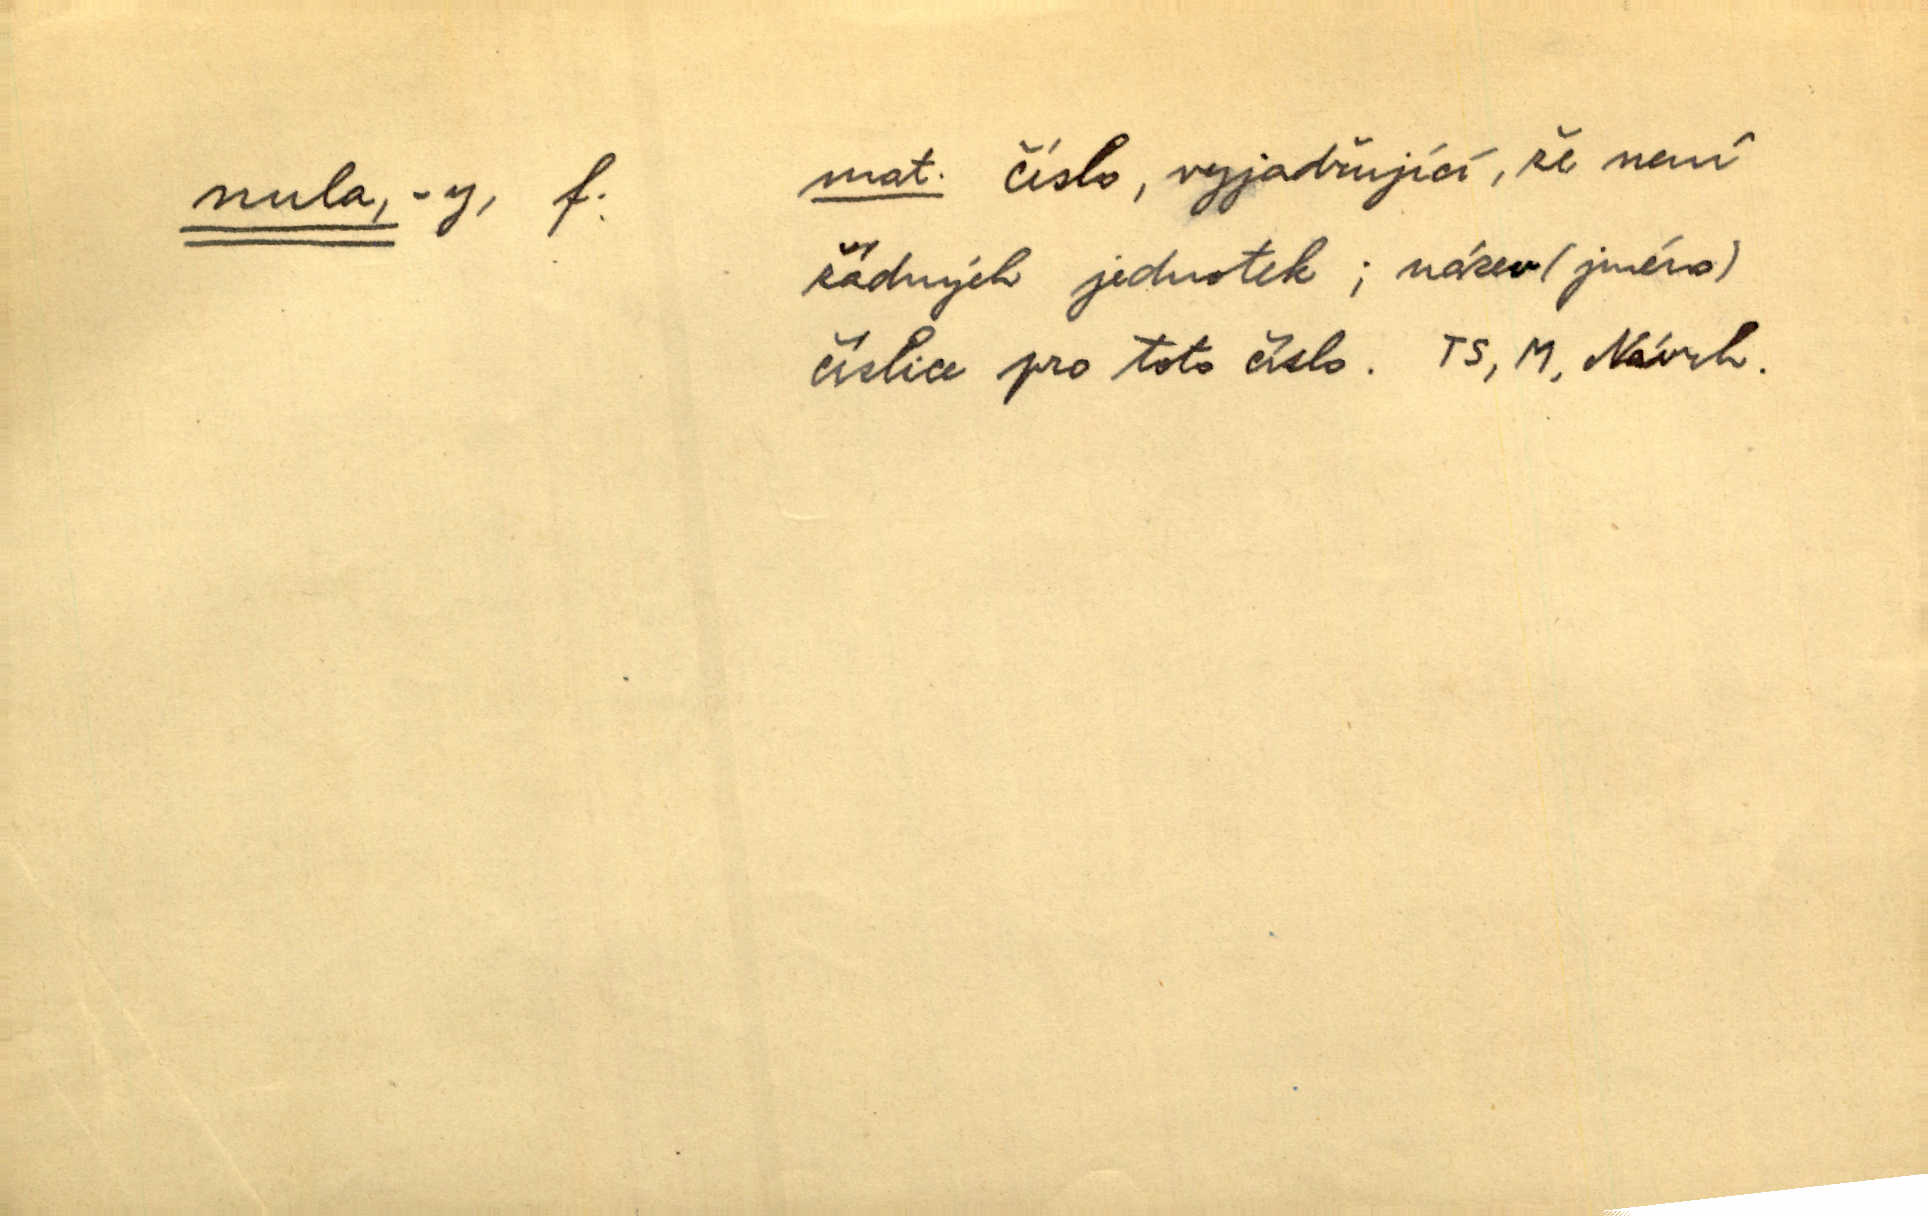 nula, -y, f.
mat. číslo, vyjadřující, že není
žádných jednotek ; název (jméno)
číslice pro toto číslo. TS, M, Návrh.